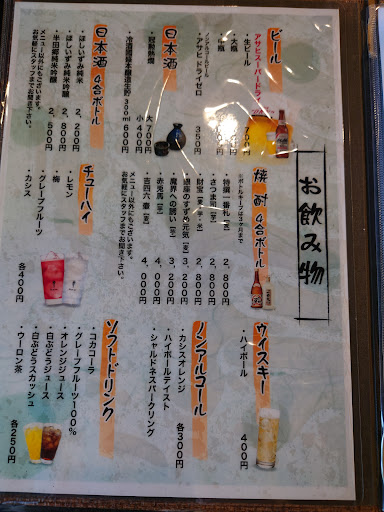 お飲み物
ビール
アサヒスーパードライ
・生ビール
・大瓶
・小瓶
ノンアルコールビール
・アサヒ ドライゼロ
350円
日本酒
・燗酒熱燗
大 700円
小 400円
300ml 600円
日本酒 4合ボトル
・ほしいずみ純米 2,200円
・ほしいずみ純米吟醸 2,800円
・半田郷純米吟醸 2,600円
メニュー以外にもございます。
お気軽にスタッフまでお聞き下さい。
焼酎 4合ボトル
※ボトルキープは3ヶ月まで
・特撰一番札【麦】 2,800円
・さつま司【芋】 2,800円
・財宝【麦・芋・米】 2,800円
・銀座のすずめ元気【麦】 3,200円
・魔界への誘い【芋】 3,200円
・赤兎馬【芋】 4,000円
・吉四六壷【麦】 4,000円
メニュー以外にもございます。
お気軽にスタッフまでお聞き下さい。
チューハイ
・レモン
・梅
・グレープフルーツ
・カシス
各400円
ウイスキー
・ハイボール
400円
ノンアルコール
・カシスオレンジ
・ハイボールテイスト
・シャルドネスパークリング
各300円
ソフトドリンク
・コカコーラ
・グレープフルーツ100%
・オレンジジュース
・白ぶどうジュース
・白ぶどうスカッシュ
・ウーロン茶
各250円